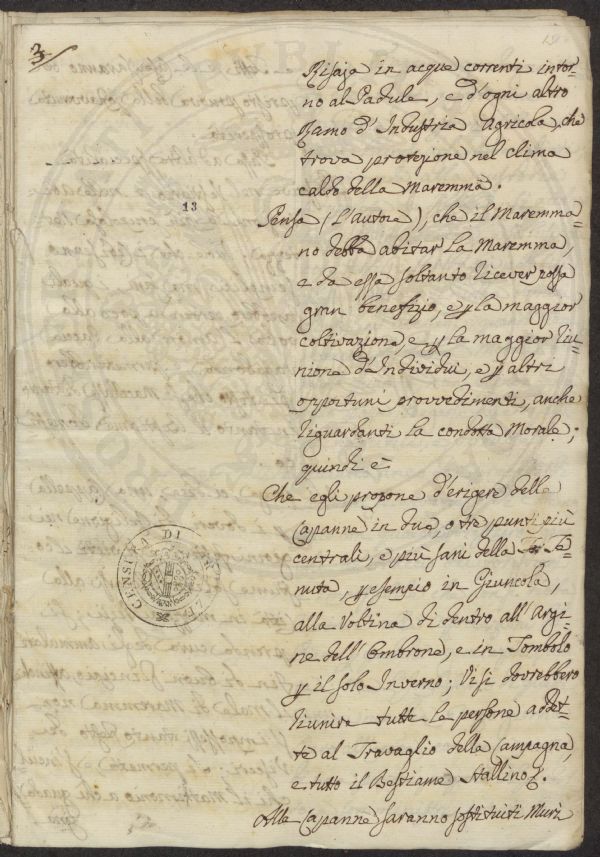 3/
13
Risaje in acque correnti intor=
no al Padule, e d'ogni altro
Ramo d'Industria Agricola, che
trova protezione nel clima
caldo della Maremma.
Pensa (L'autore), che il Maremma=
no debba abitar la Maremma,
e da essa soltanto ricever possa
gran benefizio, e p la maggior
coltivazione, e p la maggior riu=
nione d'Individui, e p altri
opportuni provvedimenti, anche
riguardanti la condotta Morale;
quindi è
Che egli propone d'erigere delle
Capanne in due, o tre punti più
centrali, e più sani della Te=
nuta, p esempio in Giuncola,
alla Voltina di dentro all'Argi=
ne dell'Ombrone, e in Tombolo
p il solo Inverno; Vi si dovrebbero
riunire tutte le persone addet=
te al Travaglio della Campagna,
e tutto il Bestiame Stallino.
Alle Capanne saranno sostituiti Muri
CENSURA DI